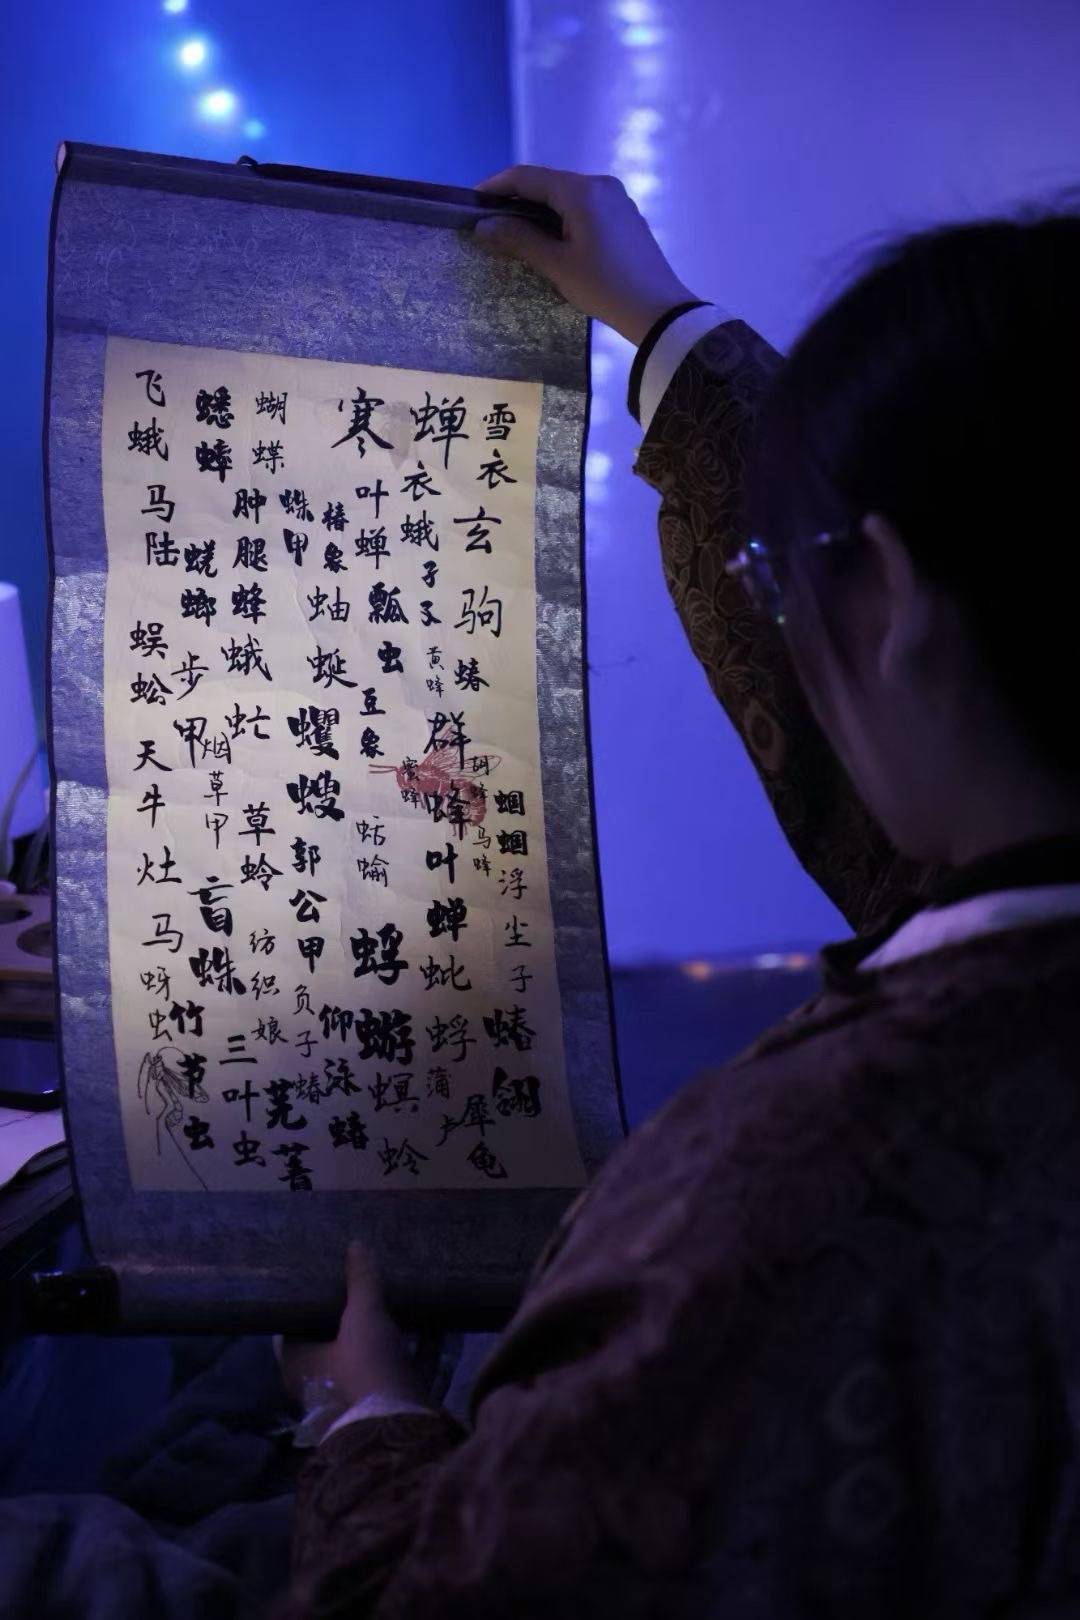 雪衣
玄驹
蝽
蝈蝈
浮尘子
蝽
犀龟
蝉
衣蛾
孑孓
黄蜂
群蜂
胡蜂
马蜂
叶蝉
蚍蜉
蒲卢
寒
叶蝉
瓢虫
豆象
蜜蜂
蛞蝓
蜉蝣
螟蛉
椿象
蚰蜒
蠼螋
郭公甲
负子蝽
仰泳蝽
蝴蝶
蛛甲
肿腿蜂
蛾
虻
草蛉
纺织娘
芫菁
蟋蟀
蜣螂
步甲
烟草甲
盲蛛
三叶虫
飞蛾
马陆
蜈蚣
天牛
灶马
蚜虫
竹节虫